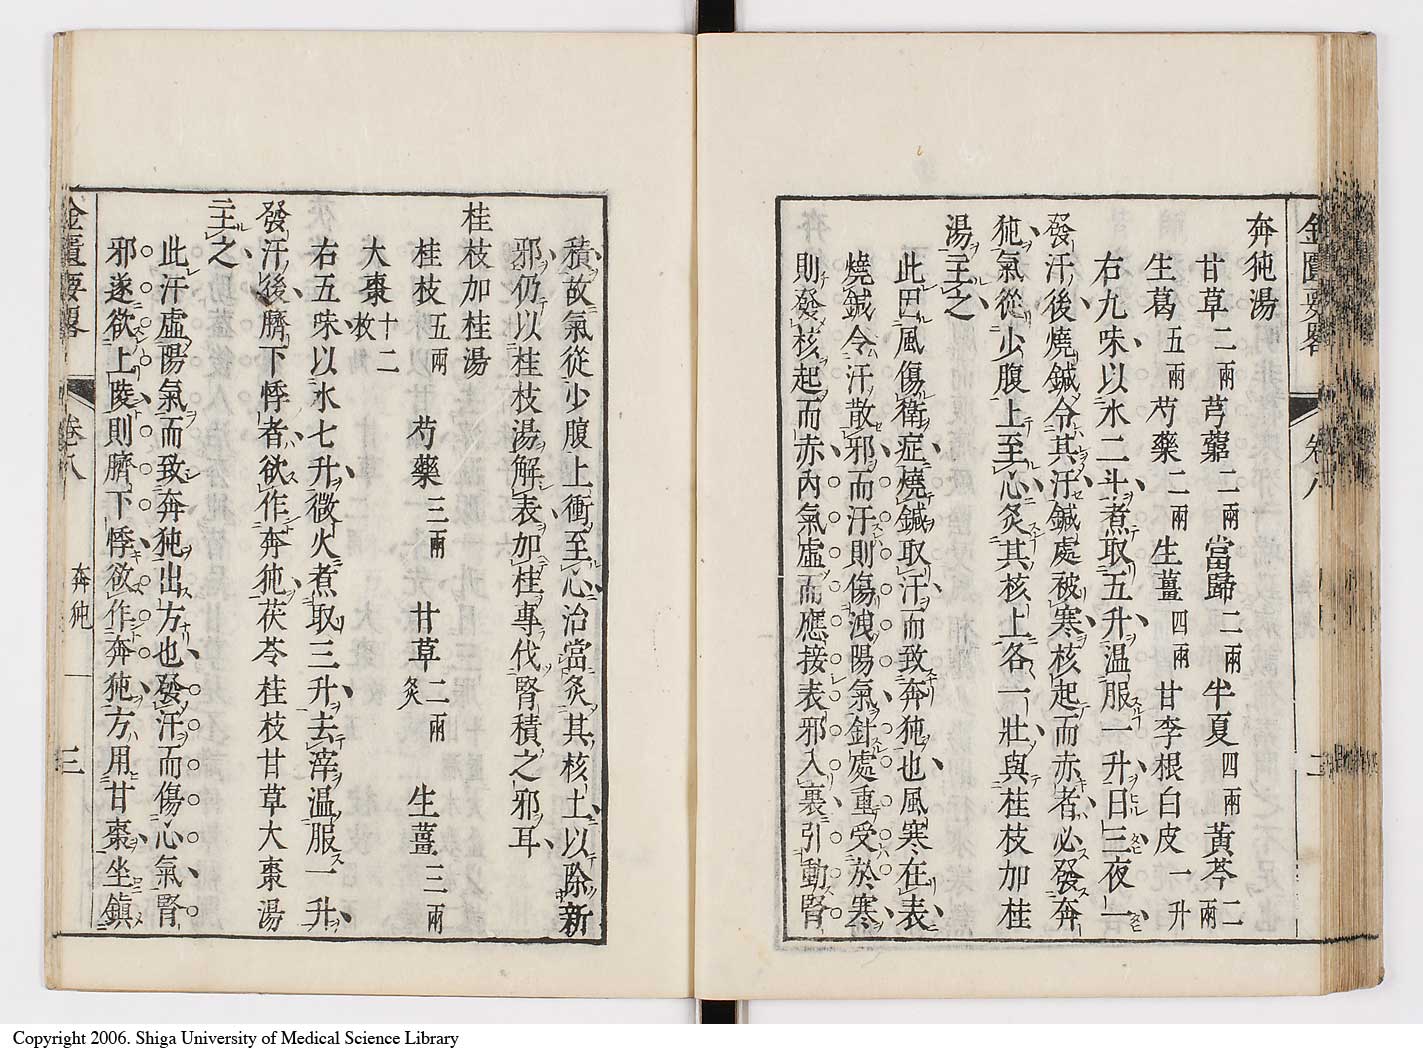 金匱要畧 卷八 二
奔㹠湯
甘草二兩芎藭二兩當歸二兩半夏四兩黃芩二兩
生葛五兩芍藥二兩生薑四兩甘李根白皮一升
右九味以水二斗煮取五升温服一升日三夜一
發汗後燒鍼令其汗鍼處被寒核起而赤者必發奔
㹠氣從少腹上至心灸其核上各一壯與桂枝加桂
湯主之
此巴風傷衛症燒鍼取汗而致奔㹠也風寒在表
燒鍼令汗散邪而汗則傷洩陽氣針處重受於寒
則發核起而赤內氣虛而應接表邪入裏引動腎
積故氣從少腹上衝至心治當灸其核土以除新
邪仍以桂枝湯解表加桂專伐腎積之邪耳
桂枝加桂湯
桂枝五兩 芍藥三兩 甘草二兩灸 生薑三兩
大棗十二枚
右五味以水七升微火煮取三升去滓温服一升
發汗後臍下悸者欲作奔㹠茯苓桂枝甘草大棗湯
主之
此汗虛陽氣而致奔㹠出方也發汗而傷心氣腎
邪遂欲上陵則臍下悸欲作奔㹠方用甘棗坐鎮
金匱要畧 卷八 奔㹠 三
Copyright 2006. Shiga University of Medical Science Library